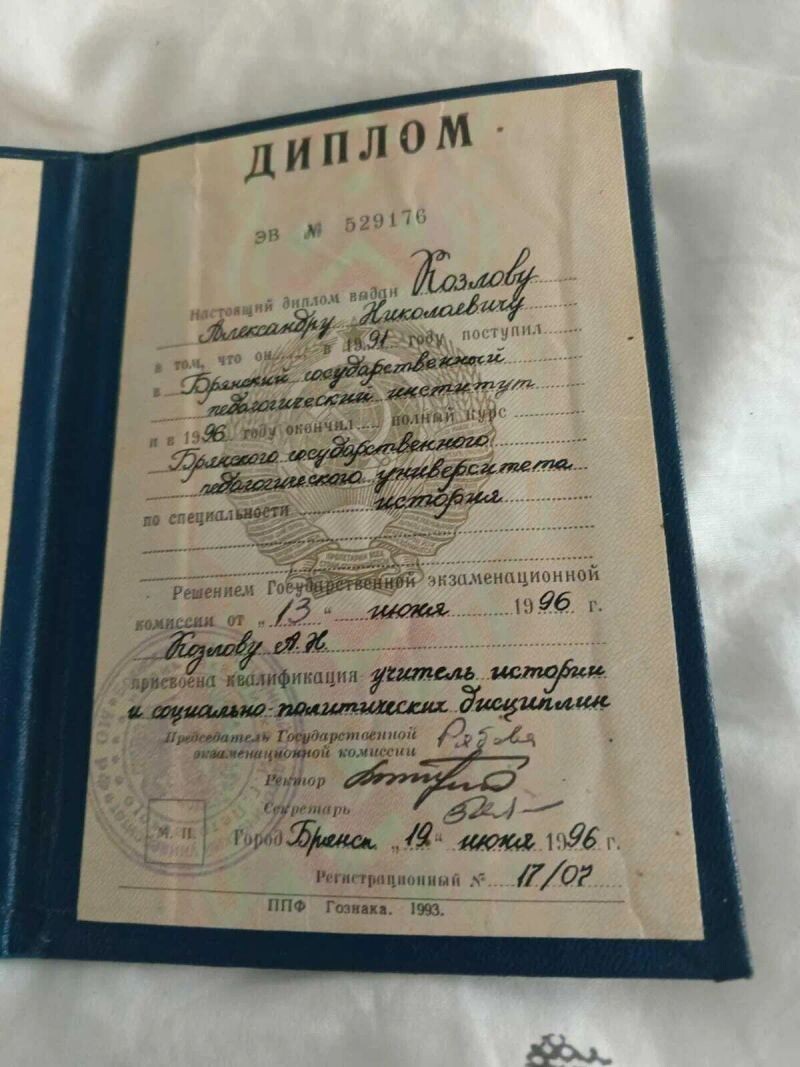 ДИПЛОМ
ЭВ № 529176
Настоящий диплом выдан Козлову
Александру Николаевичу
в том, что он в 1991 году поступил
в Брянский государственный
педагогический институт
и в 1996 году окончил полный курс
Брянского государственного
педагогического университета
по специальности история
ПРОЛЕТАРИИ ВСЕХ
Решением Государственной экзаменационной
комиссии от „13“ июня 1996 г.
Козлову А.Н.
присвоена квалификация учитель истории
и социально-политических дисциплин
Председатель Государственной
экзаменационной комиссии
Ректор
Секретарь
М. П.
Город Брянск „19“ июня 1996 г.
Регистрационный № 17/07
ППФ Гознака. 1993.